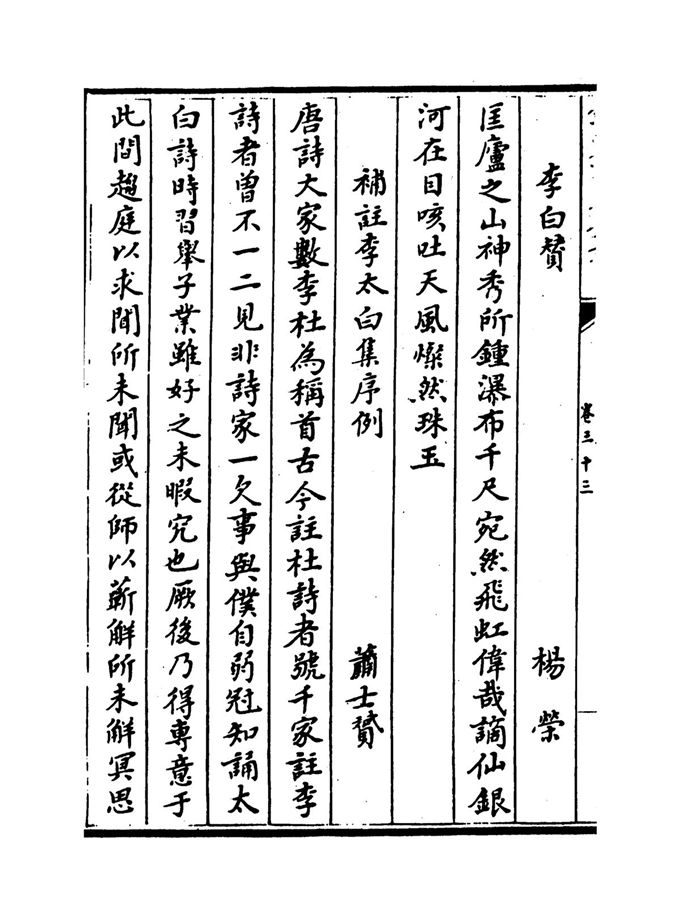 卷三十三
李白贊 楊榮
匡廬之山神秀所鍾瀑布千尺宛然飛虹偉哉謫仙銀
河在目咳吐天風燦然珠玉
補註李太白集序例 蕭士贇
唐詩大家數李杜為稱首古今註杜詩者號千家註李
詩者曾不一二見非詩家一欠事與僕自弱冠知誦太
白詩時習舉子業雖好之未暇究也厥後乃得專意于
此間趨庭以求聞所未聞或從師以蘄解所未解冥思